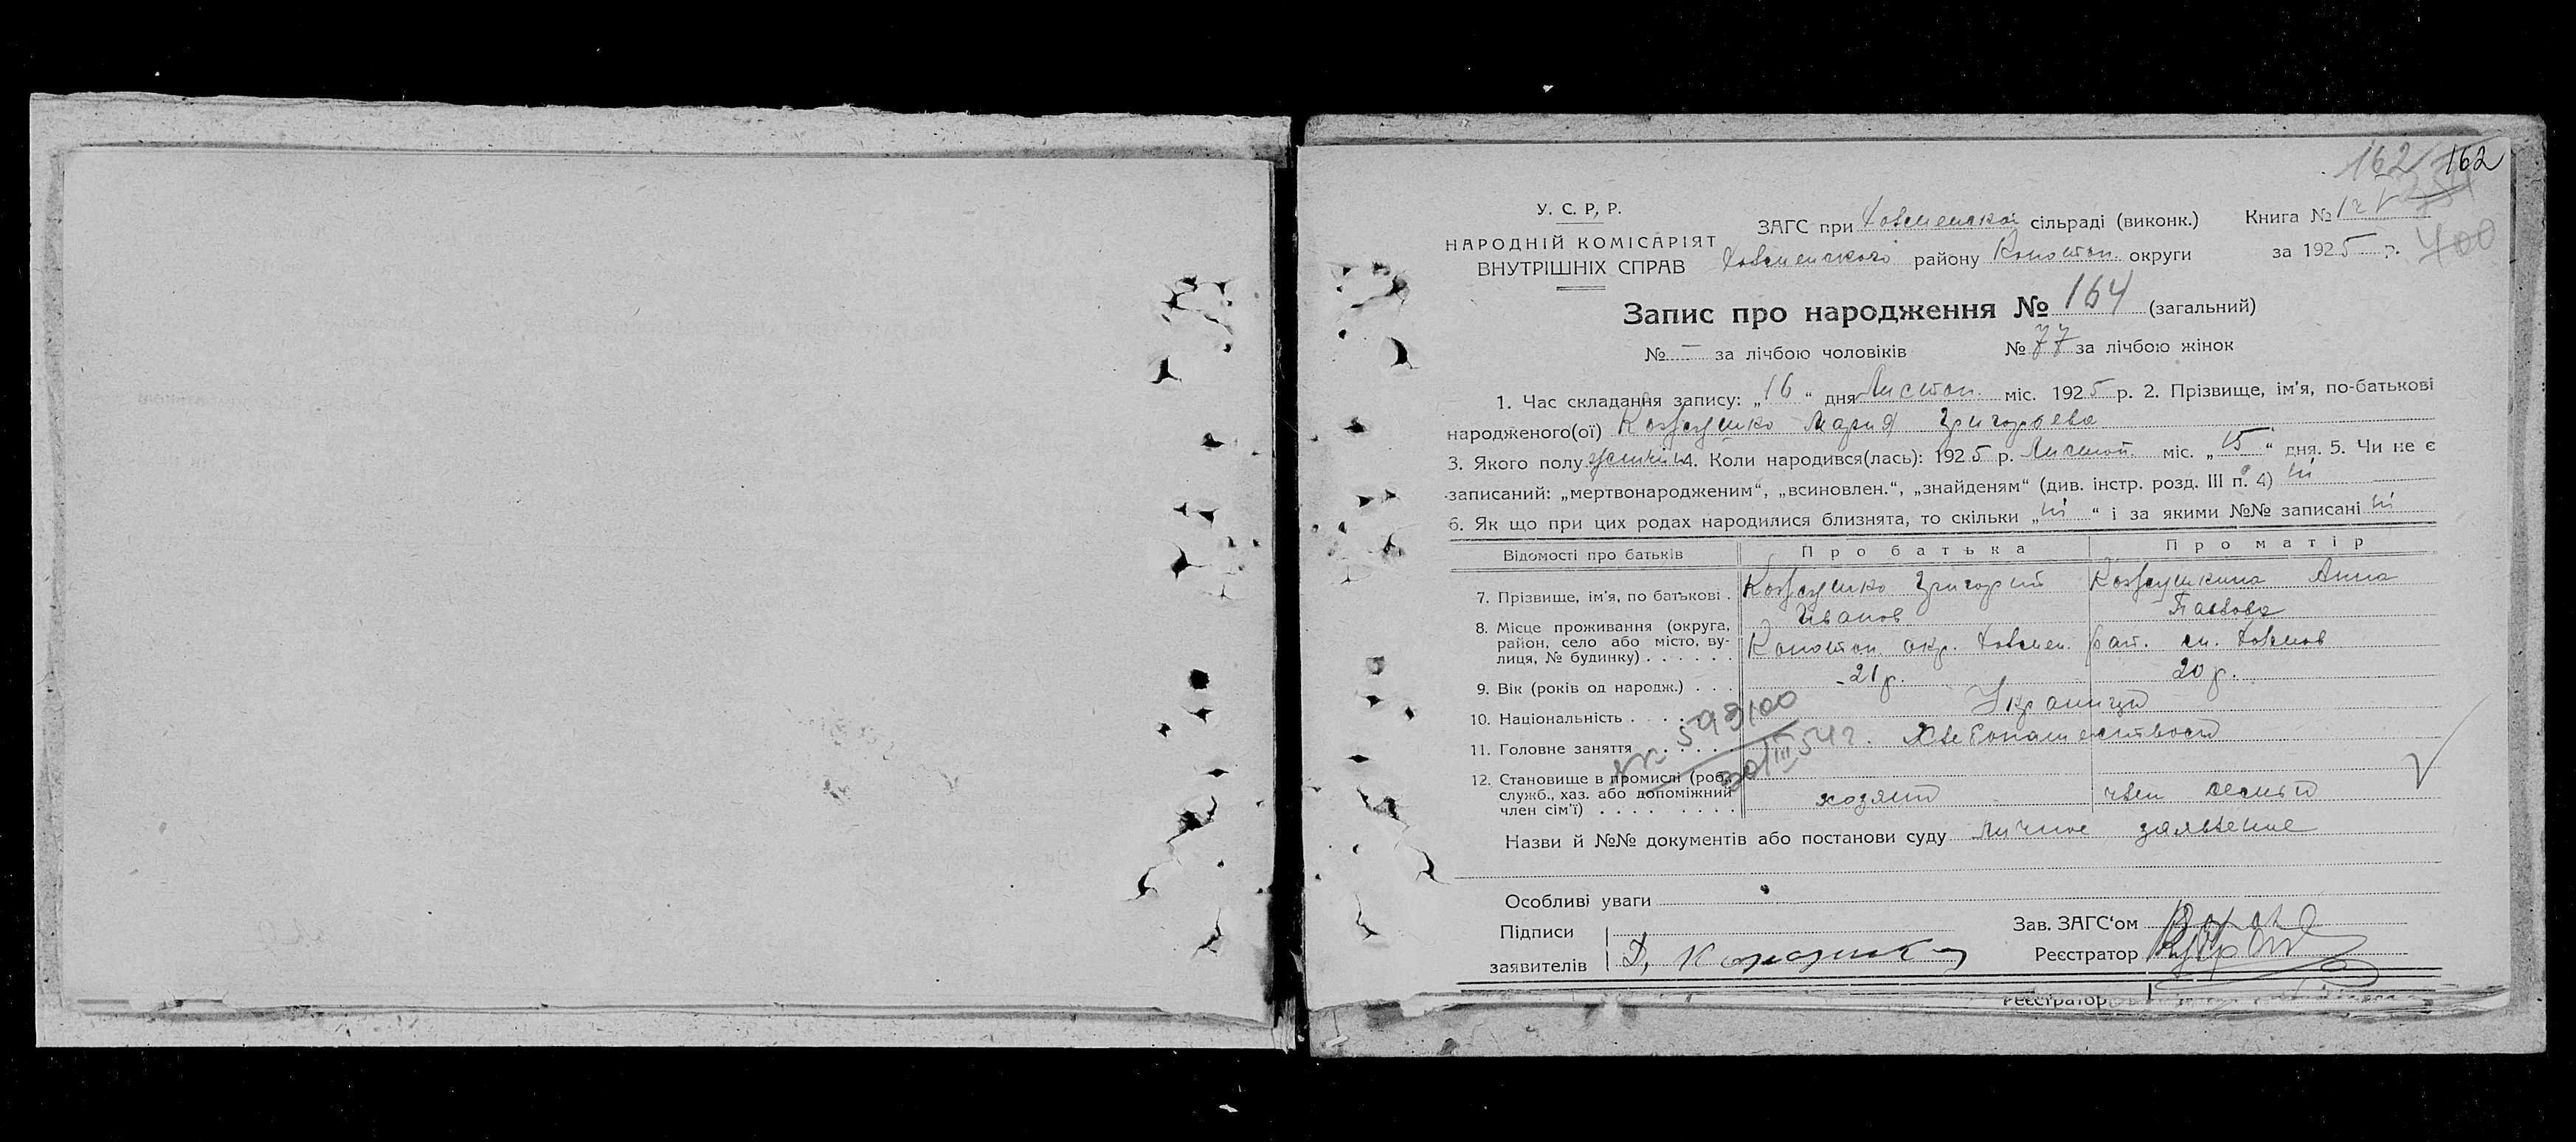 162 162
400
У. С. Р. Р.
НАРОДНІЙ КОМІСАРІЯТ
ВНУТРІШНІХ СПРАВ
ЗАГС при сільраді (виконк.)
району Конотоп. округи
Книга №
за 1925 р.
Запис про народження № 164 (загальний)
№ — за лічбою чоловіків № 77 за лічбою жінок
1. Час складання запису: „16“ дня Листоп. міс. 1925 р. 2. Прізвище, ім'я, по-батькові
народженого(ої) Кожушко Мария Григорьева
3. Якого полу 4. Коли народився(лась): 1925 р. Листоп. міс. „15“ дня. 5. Чи не є
записаний: „мертвонародженим“, „всиновлен.“, „знайденям“ (див. інстр. розд. III п. 4) ні
6. Як що при цих родах народилися близнята, то скільки „ні“ і за якими №№ записані ні
Відомості про батьків Про батька Про матір
7. Прізвище, ім'я, по батькові . Кожушко Григорий Кожушкина Анна
Иванов Павлова
8. Місце проживання (округа,
район, село або місто, ву-
лиця, № будинку) . . . . . . Конотоп. окр. рай.
9. Вік (років од народж.) . . . 21 р. 20 р.
10. Національність . . . . Українци
11. Головне заняття . . . . . . Хлебопашество
593100
30/III 54 г.
12. Становище в промислі (роб.,
служб., хаз. або допоміжний
член сім'ї) . . . . . . . . . хозяин член семьи
Назви й №№ документів або постанови суду личное заявление
Особливі уваги
Підписи
заявителів
Зав. ЗАГС'ом
Реєстратор
Реєстратор